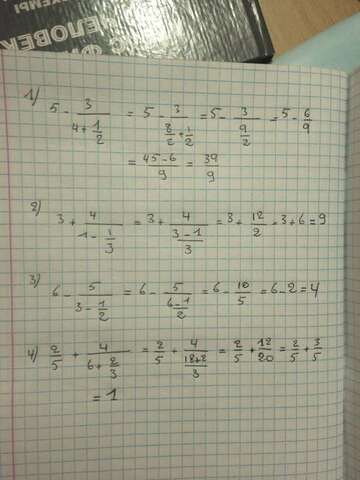 ЧЕЛОВЕК
1) 5 - 3/(4 + 1/2) = 5 - 3/(8/2 + 1/2) = 5 - 3/(9/2) = 5 - 6/9
= (45-6)/9 = 39/9
2) 3 + 4/(1 - 1/3) = 3 + 4/((3-1)/3) = 3 + 12/2 = 3+6 = 9
3) 6 - 5/(3 - 1/2) = 6 - 5/((6-1)/2) = 6 - 10/5 = 6-2 = 4
4) 2/5 + 4/(6 + 2/3) = 2/5 + 4/((18+2)/3) = 2/5 + 12/20 = 2/5 + 3/5
= 1